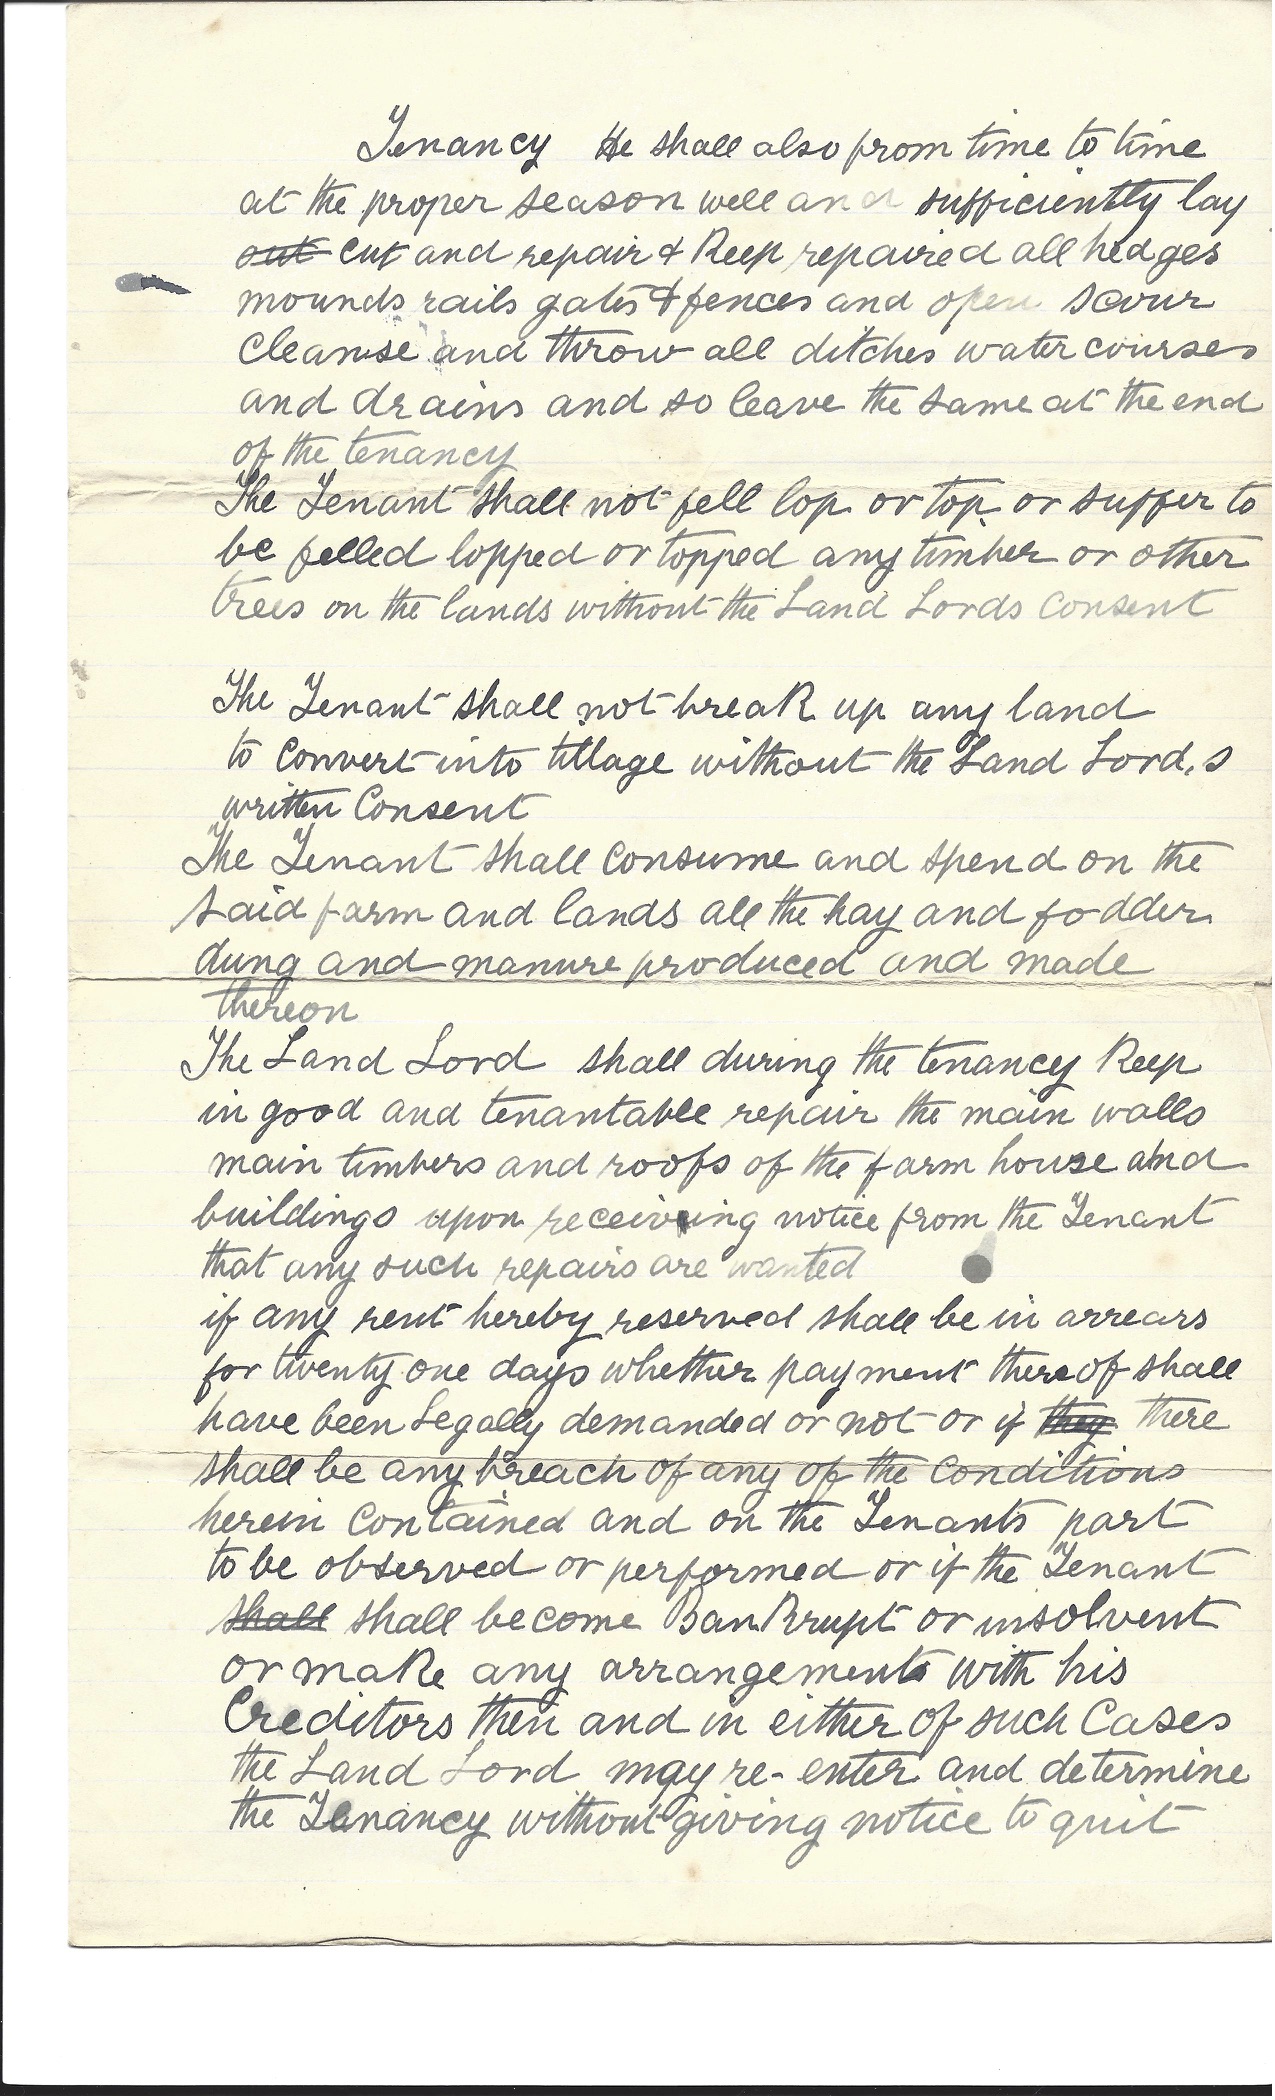 Tenancy He shall also from time to time
at the proper season well and sufficiently lay
out cut and repair & Keep repaired all hedges
mounds rails gates & fences and open scour
cleanse and throw all ditches water courses
and drains and so leave the same at the end
of the tenancy
The Tenant shall not fell lop or top or suffer to
be felled lopped or topped any timber or other
trees on the lands without the Land Lords Consent
The Tenant shall not break up any land
to Convert into tillage without the Land Lord,s
written Consent
The Tenant shall Consume and spend on the
said farm and lands all the hay and fodder
dung and manure produced and made
thereon
The Land Lord shall during the tenancy Keep
in good and tenantable repair the main walls
main timbers and roofs of the farm house and
buildings upon receiving notice from the Tenant
that any such repairs are wanted
if any rent hereby reserved shall be in arrears
for twenty one days whether payment thereof shall
have been Legally demanded or not or if they there
shall be any breach of any of the Conditions
herein Contained and on the Tenants part
to be observed or performed or if the Tenant
shall shall become BanKrupt or insolvent
or maKe any arrangements with his
Creditors then and in either of such Cases
the Land Lord may re-enter and determine
the Tenancy without giving notice to quit